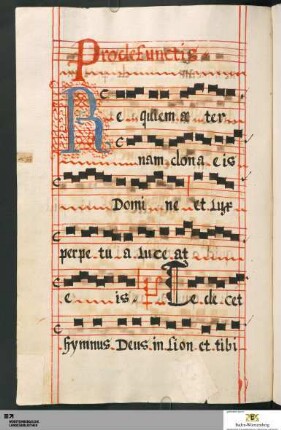 Pro defunctis
Re quiem æ ter
nam dona e is
Domi ne et lux
perpe tu a luce at
e is ℣ Te de cet
hymnus Deus in Sion et tibi
WÜRTTEMBERGISCHE
LANDESBIBLIOTHEK
Baden-Württemberg